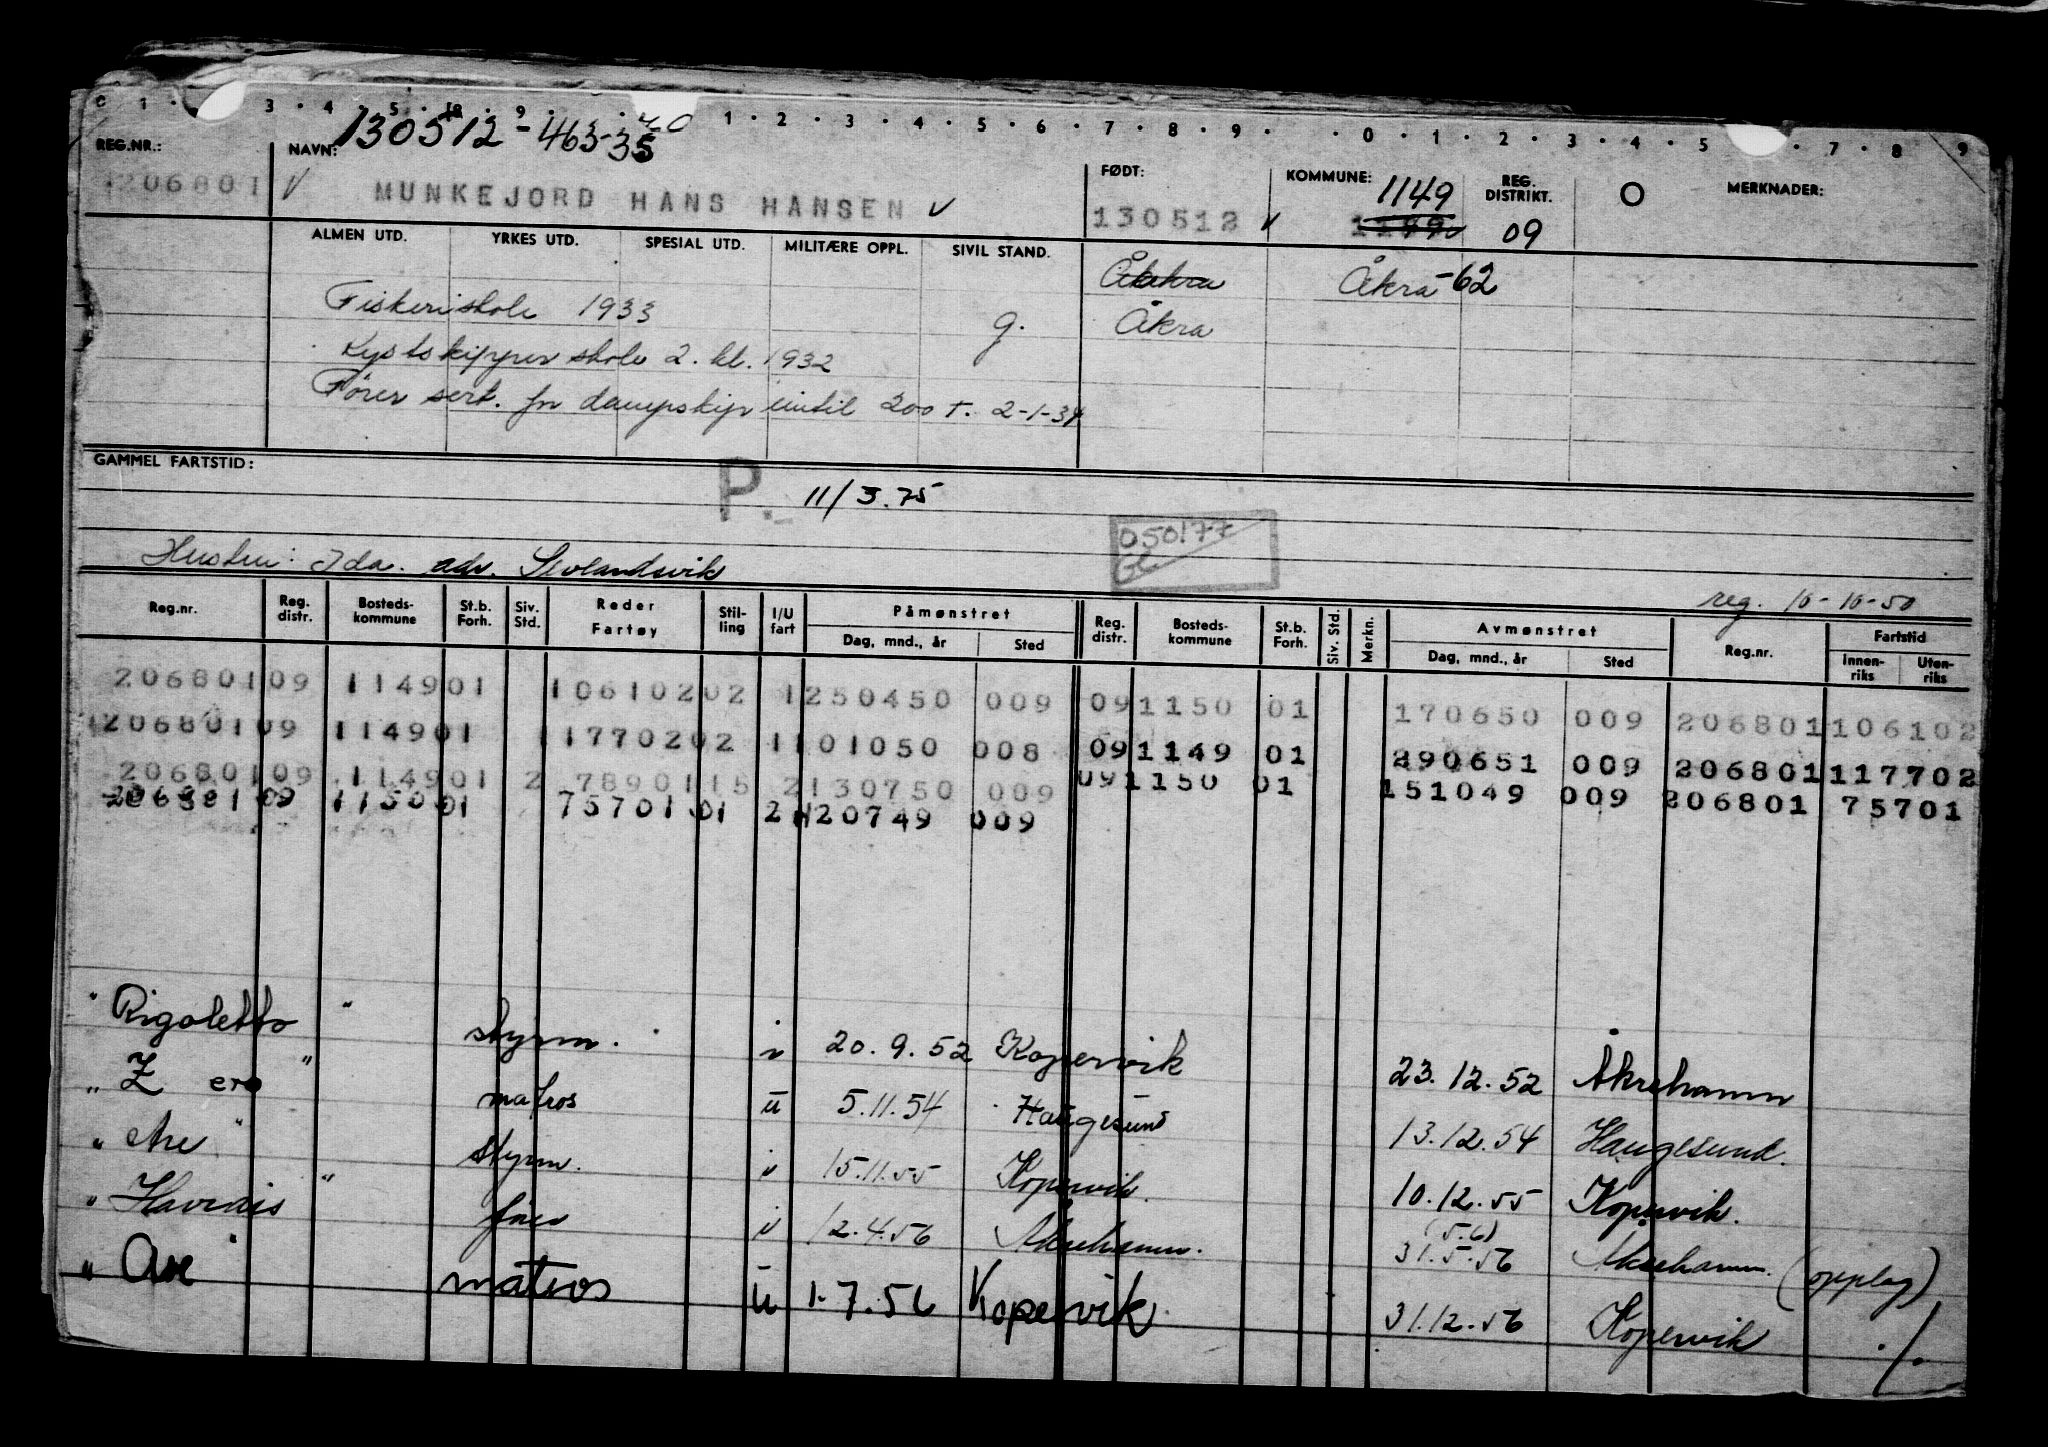 130512-463-35
REG.NR.: NAVN: FØDT: KOMMUNE: 1149 REG. DISTRIKT. O MERKNADER:
206801 √ MUNKEJORD HANS HANSEN √ 130512 √ 09
ALMEN UTD. YRKES UTD. SPESIAL UTD. MILITÆRE OPPL. SIVIL STAND. Åkra -62
Fiskeriskole 1933 g. Åkra
Kystskipper skole 2. kl. 1932
Fører sert. for dampskip inntil 200 T. 2-1-34
GAMMEL FARTSTID:
P. 11/3.75
050177
Hustru: Ida. adr. Sevlandsvik
reg. 16-10-50
Reg.nr. Reg. distr. Bosteds- kommune St.b. Forh. Siv. Std. Reder Fartøy Stil- ling I/U fart Påmønstret Dag, mnd., år Sted Reg. distr. Bosteds- kommune St.b. Forh. Siv. Std. Merkn. Avmønstret Dag, mnd., år Sted Reg.nr. Fartstid Innen- riks Uten- riks
206801 09 1149 01 106102 02 1 250450 009 09 1150 01 170650 009 206801 106102
206801 09 1149 01 117702 02 1 101050 008 09 1149 01 290651 009 206801 117702
206801 09 1149 01 2 78901 15 2 130750 009 09 1150 01 151049 009 206801 75701
206801 09 1150 01 75701 01 2 120749 009
" Rigoletto " styrm. i 20.9.52 Kopervik 23.12.52 Åkrehamn
" Zero " matros u 5.11.54 Haugesund 13.12.54 Haugesund.
" Are " styrm. i 15.11.55 Kopervik. 10.12.55 Kopervik.
" Havdis " fører i 12.4.56 Åkrehamn. (5.6) 31.5.56 Åkrehamn. (opplag)
" Are " matros u 1.7.56 Kopervik. 31.12.56 Kopervik ./.